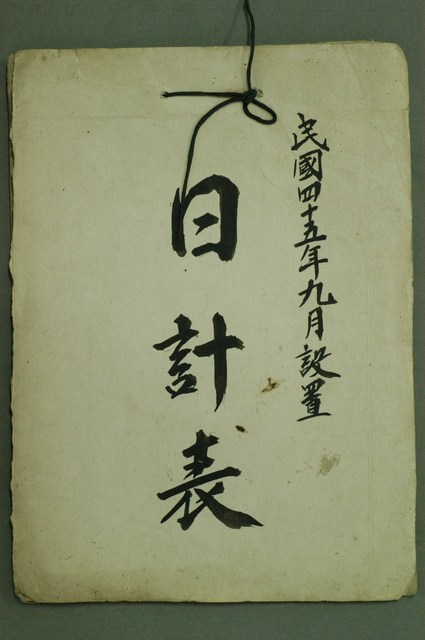 民國四十五年九月設置
日計表